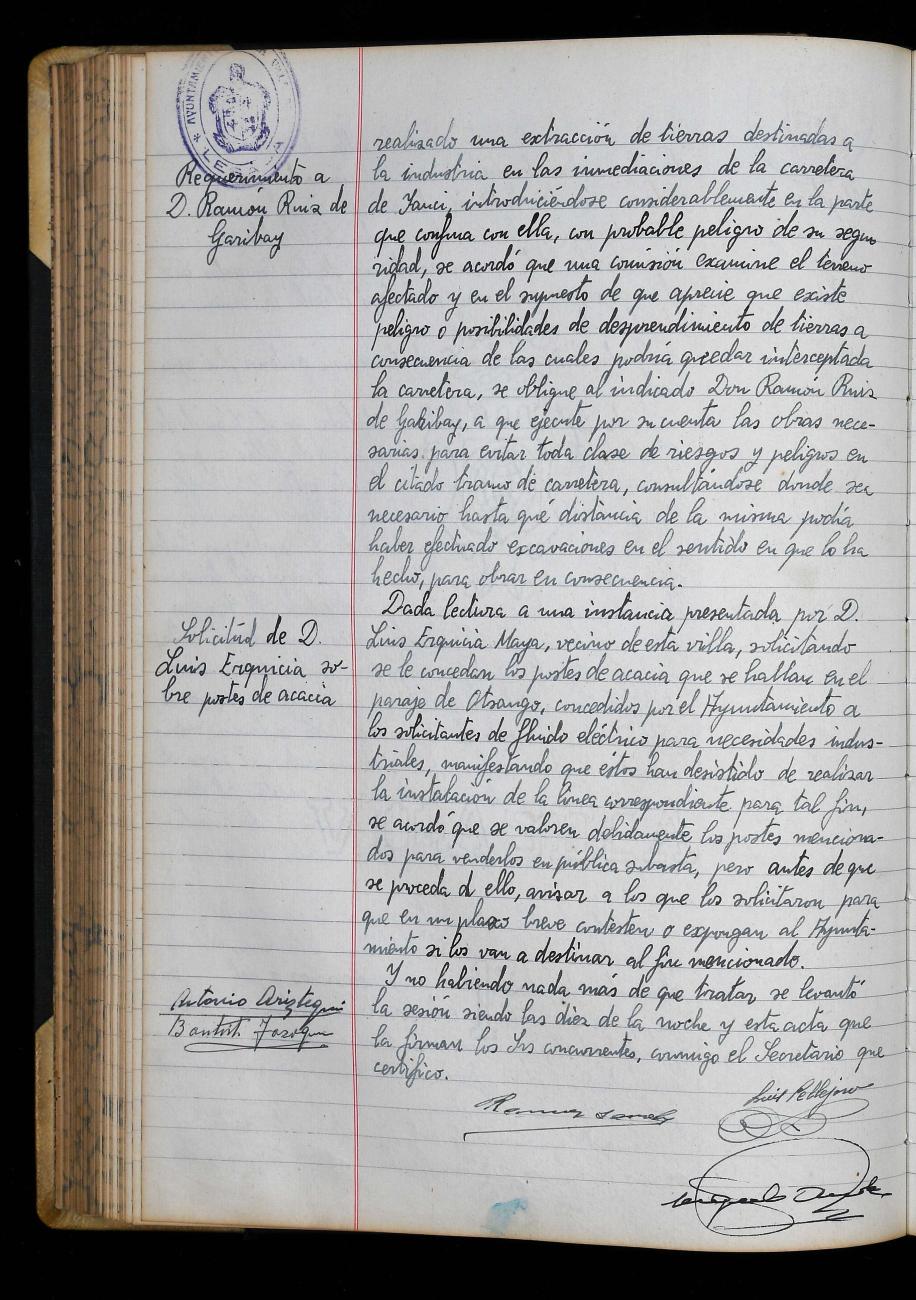 AYUNTAMIE
Requerimento a
D. Ramón Ruiz de
Garibay
realizado una extracción de tierras destinadas a
la industria en las inmediaciones de la carretera
de Yanci, introduciéndose considerablemente en la parte
que confina con ella, con probable peligro de su segu
ridad, se acordó que una comisión examine el terreno
afectado y en el supuesto de que aprecie que existe
peligro o posibilidades de desprendimiento de tierras a
consecuencia de las cuales podría quedar interceptada
la carretera, se obligue al indicado Don Ramón Ruiz
de Garibay, a que ejecute por su cuenta las obras nece-
sarias para evitar toda clase de riesgos y peligros en
el citado tramo de carretera, consultándose donde sea
necesario hasta qué distancia de la misma podía
haber efectuado excavaciones en el sentido en que lo ha
hecho, para obrar en consecuencia.
Solicitud de D.
Luis Erquicia so-
bre postes de acacia
Dada lectura a una instancia presentada por D.
Luis Erquicia Maya, vecino de esta villa, solicitando
se le concedan los postes de acacia que se hallan en el
paraje de Otsango, concedidos por el Ayuntamiento a
los solicitantes de fluido eléctrico para necesidades indus-
triales, manifestando que éstos han desistido de realizar
la instalación de la línea correspondiente para tal fin,
se acordó que se valoren debidamente los postes menciona-
dos para venderlos en pública subasta, pero antes de que
se proceda a ello, avisar a los que los solicitaron para
que en un plazo breve contesten o expongan al Ayunta-
miento si los van a destinar al fin mencionado.
Y no habiendo nada más de que tratar se levantó
la sesión siendo las diez de la noche y esta acta que
la firman los Srs concurrentes, conmigo el Secretario que
certifico.
Antonio Ariztegui
Luis Pellejero